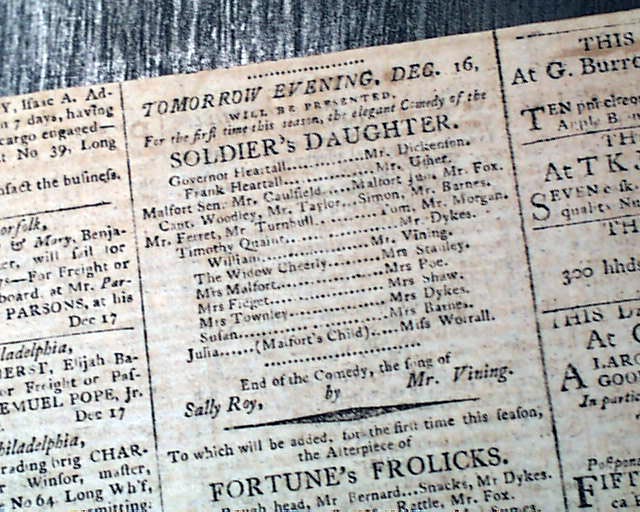 Y, Isaac A. Ad-
n 7 days, having
cargo engaged—
t No 39, Long
nsact the business.
orfolk,
& Mary, Benja-
ter, will sail for
gs—For Freight or
board, at Mr. Par-
PARSONS, at his
Dec 17
ladelphia,
HERST, Elijah Ba-
or Freight or Pas-
EMUEL POPE, Jr.
Dec 17
hiladelphia,
rading brig CHAR-
Winsor, master,
e No 64 Long Wh'f,
TOMORROW EVENING, DEC. 16,
WILL BE PRESENTED,
For the first time this season, the elegant Comedy of the
SOLDIER's DAUGHTER.
Governor Heartall..........Mr. Dickenson.
Frank Heartall..........Mr. Usher.
Malfort Sen. Mr. Caulfield....Malfort Jun. Mr. Fox.
Capt. Woodley, Mr. Taylor...Simon, Mr. Barnes.
Mr. Ferret, Mr Turnbull..........Tom, Mr. Morgan.
Timothy Quaint..........Mr. Dykes.
William..........Mr. Vining.
The Widow Cheerly..........Mrs Stanley.
Mrs Malfort..........Mrs Poe.
Mrs Fidget..........Mrs Shaw.
Mrs Townley..........Mrs Dykes.
Susan..........Mrs Barnes.
Julia......(Malfort's Child).....Miss Worrall.
End of the Comedy, the song of
Sally Roy, by Mr. Vining.
To which will be added, for the first time this season,
the Afterpiece of
FORTUNE's FROLICKS.
Rough head, Mr Bernard...Snacks, Mr Dykes.
Rattle, Mr. Fox.
THIS
At G. Burro
TEN puncheons
Apple B
TH
At T K
SEVEN casks
quality N
TH
300 hhds
THIS DA
At
A LARG
GOO
In partic
Postpone
FIFT
ca